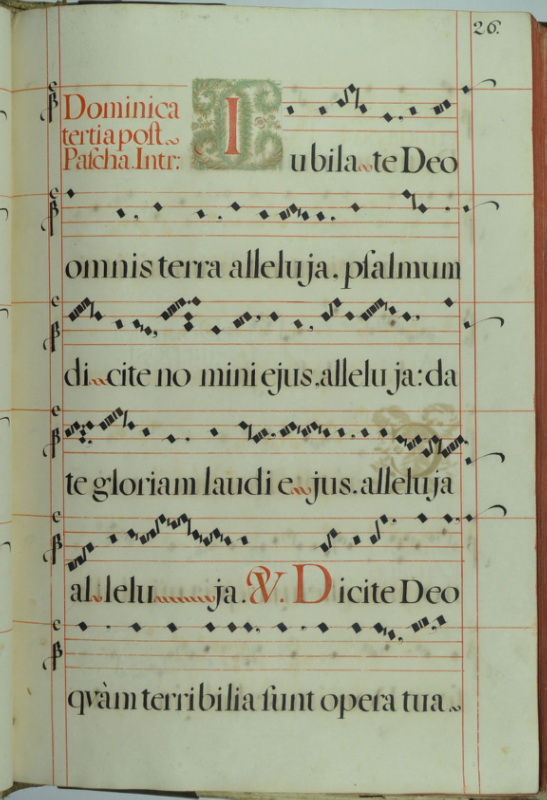 26.
Dominica
tertia poſt
Paſcha. Intr:
Iubila te Deo
omnis terra alleluja. pſalmum
di cite no mini ejus. allelu ja: da
te gloriam laudi e jus. alleluja
al lelu ja. ℣. Dicite Deo
qvàm terribilia ſunt opera tua